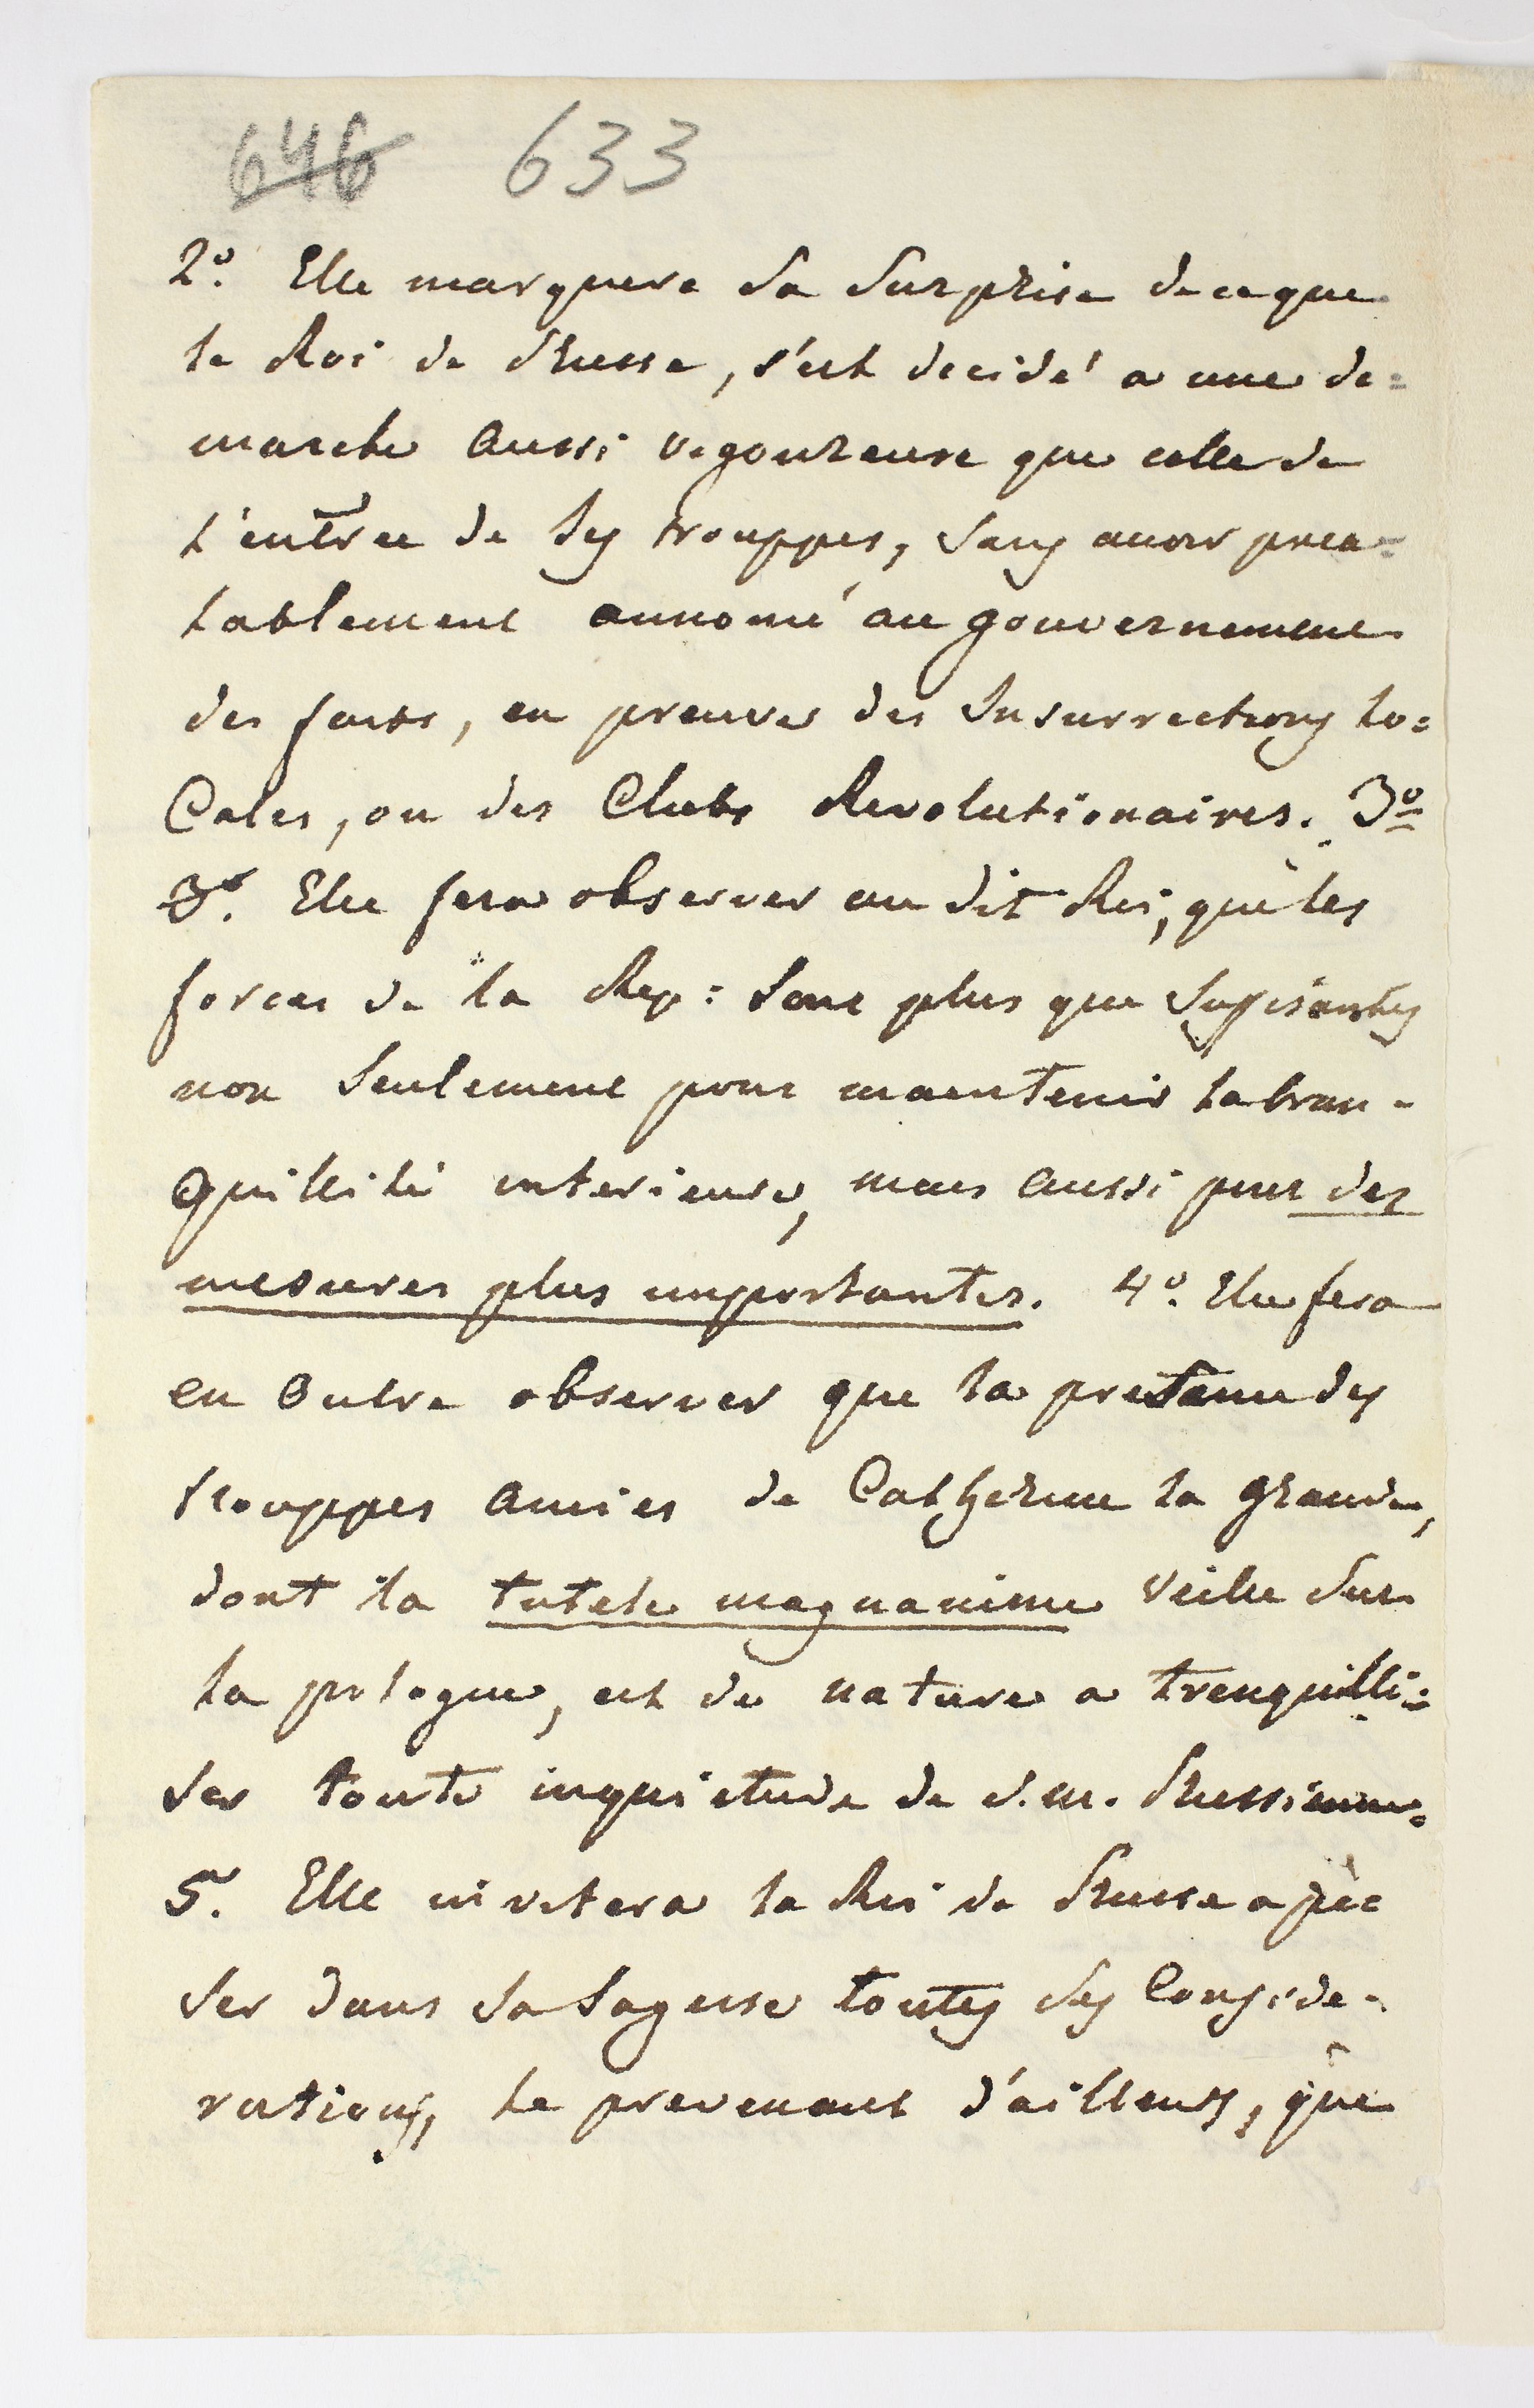 646 633
2º. Elle marquera sa surprise de ce que
le Roi de Prusse, s'est decidé a une de=
marche aussi vigoureuse que celle de
l'entrée de ses trouppes, sans avoir prea=
lablement annoncé au gouvernement
des faits, en preuves des Insurrections lo=
Cales, ou des Clubs Revolutionaires. 3º
3º. Elle fera observer au dit Roi, que les
forces de la Rep: sont plus que suffisantes
non seulement pour maintenir la tran-
quillité interieure, mais aussi pour des
mesures plus importantes. 4º. Elle fera
en outre observer que la presence des
trouppes amies de Catherine la grande,
dont la tutele magnanime veille sur
la pologne, est de nature a trenquilli=
ser toute inquietude de S. M. Prussienne.
5º. Elle invitera le Roi de Prusse a pe=
ser dans sa sagesse toutes ses Conside-
rations, le prevenant d'ailleurs, que